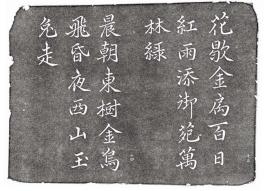 花歇金百日
紅雨添御苑萬
林綠
晨朝東樹金烏
飛昏夜西山玉
兔走